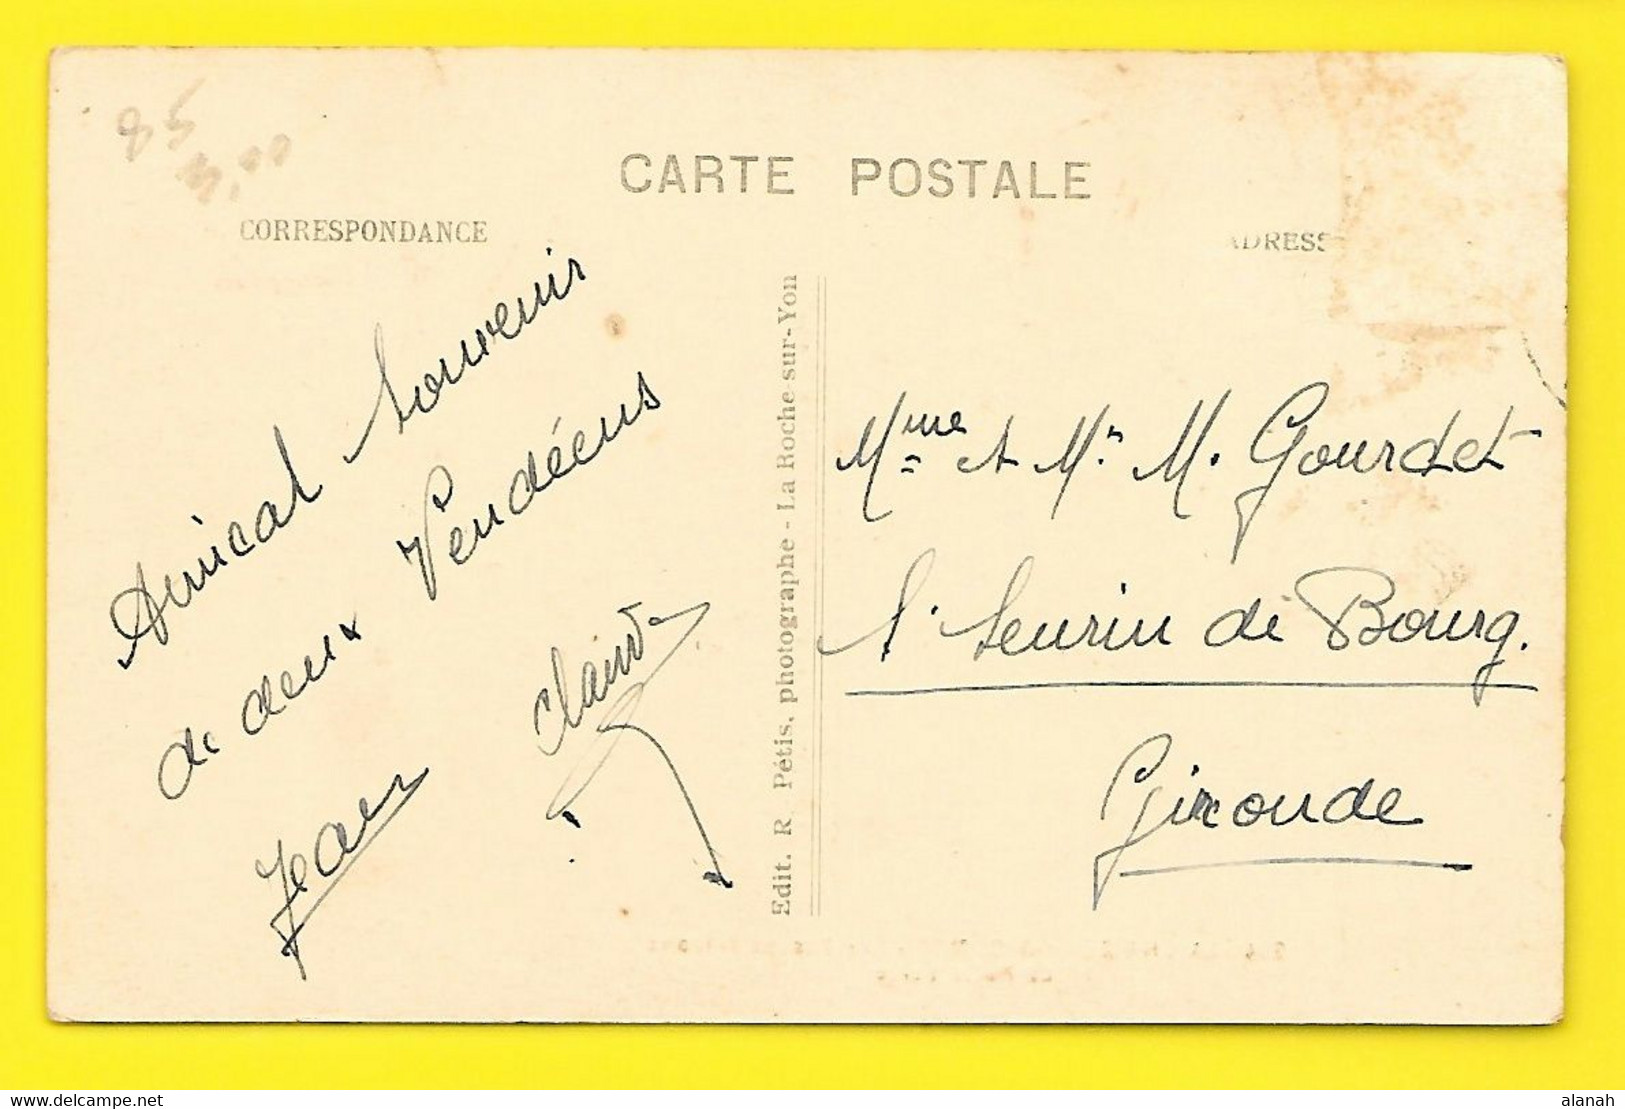 85
CARTE POSTALE
CORRESPONDANCE
ADRESS
Amical Souvenir
de deux Vendéens
Jean
Edit. R. Pétis, photographe - La Roche-sur-Yon
Mme et Mr. M. Gourdet
St Seurin de Bourg.
Gironde
alanah